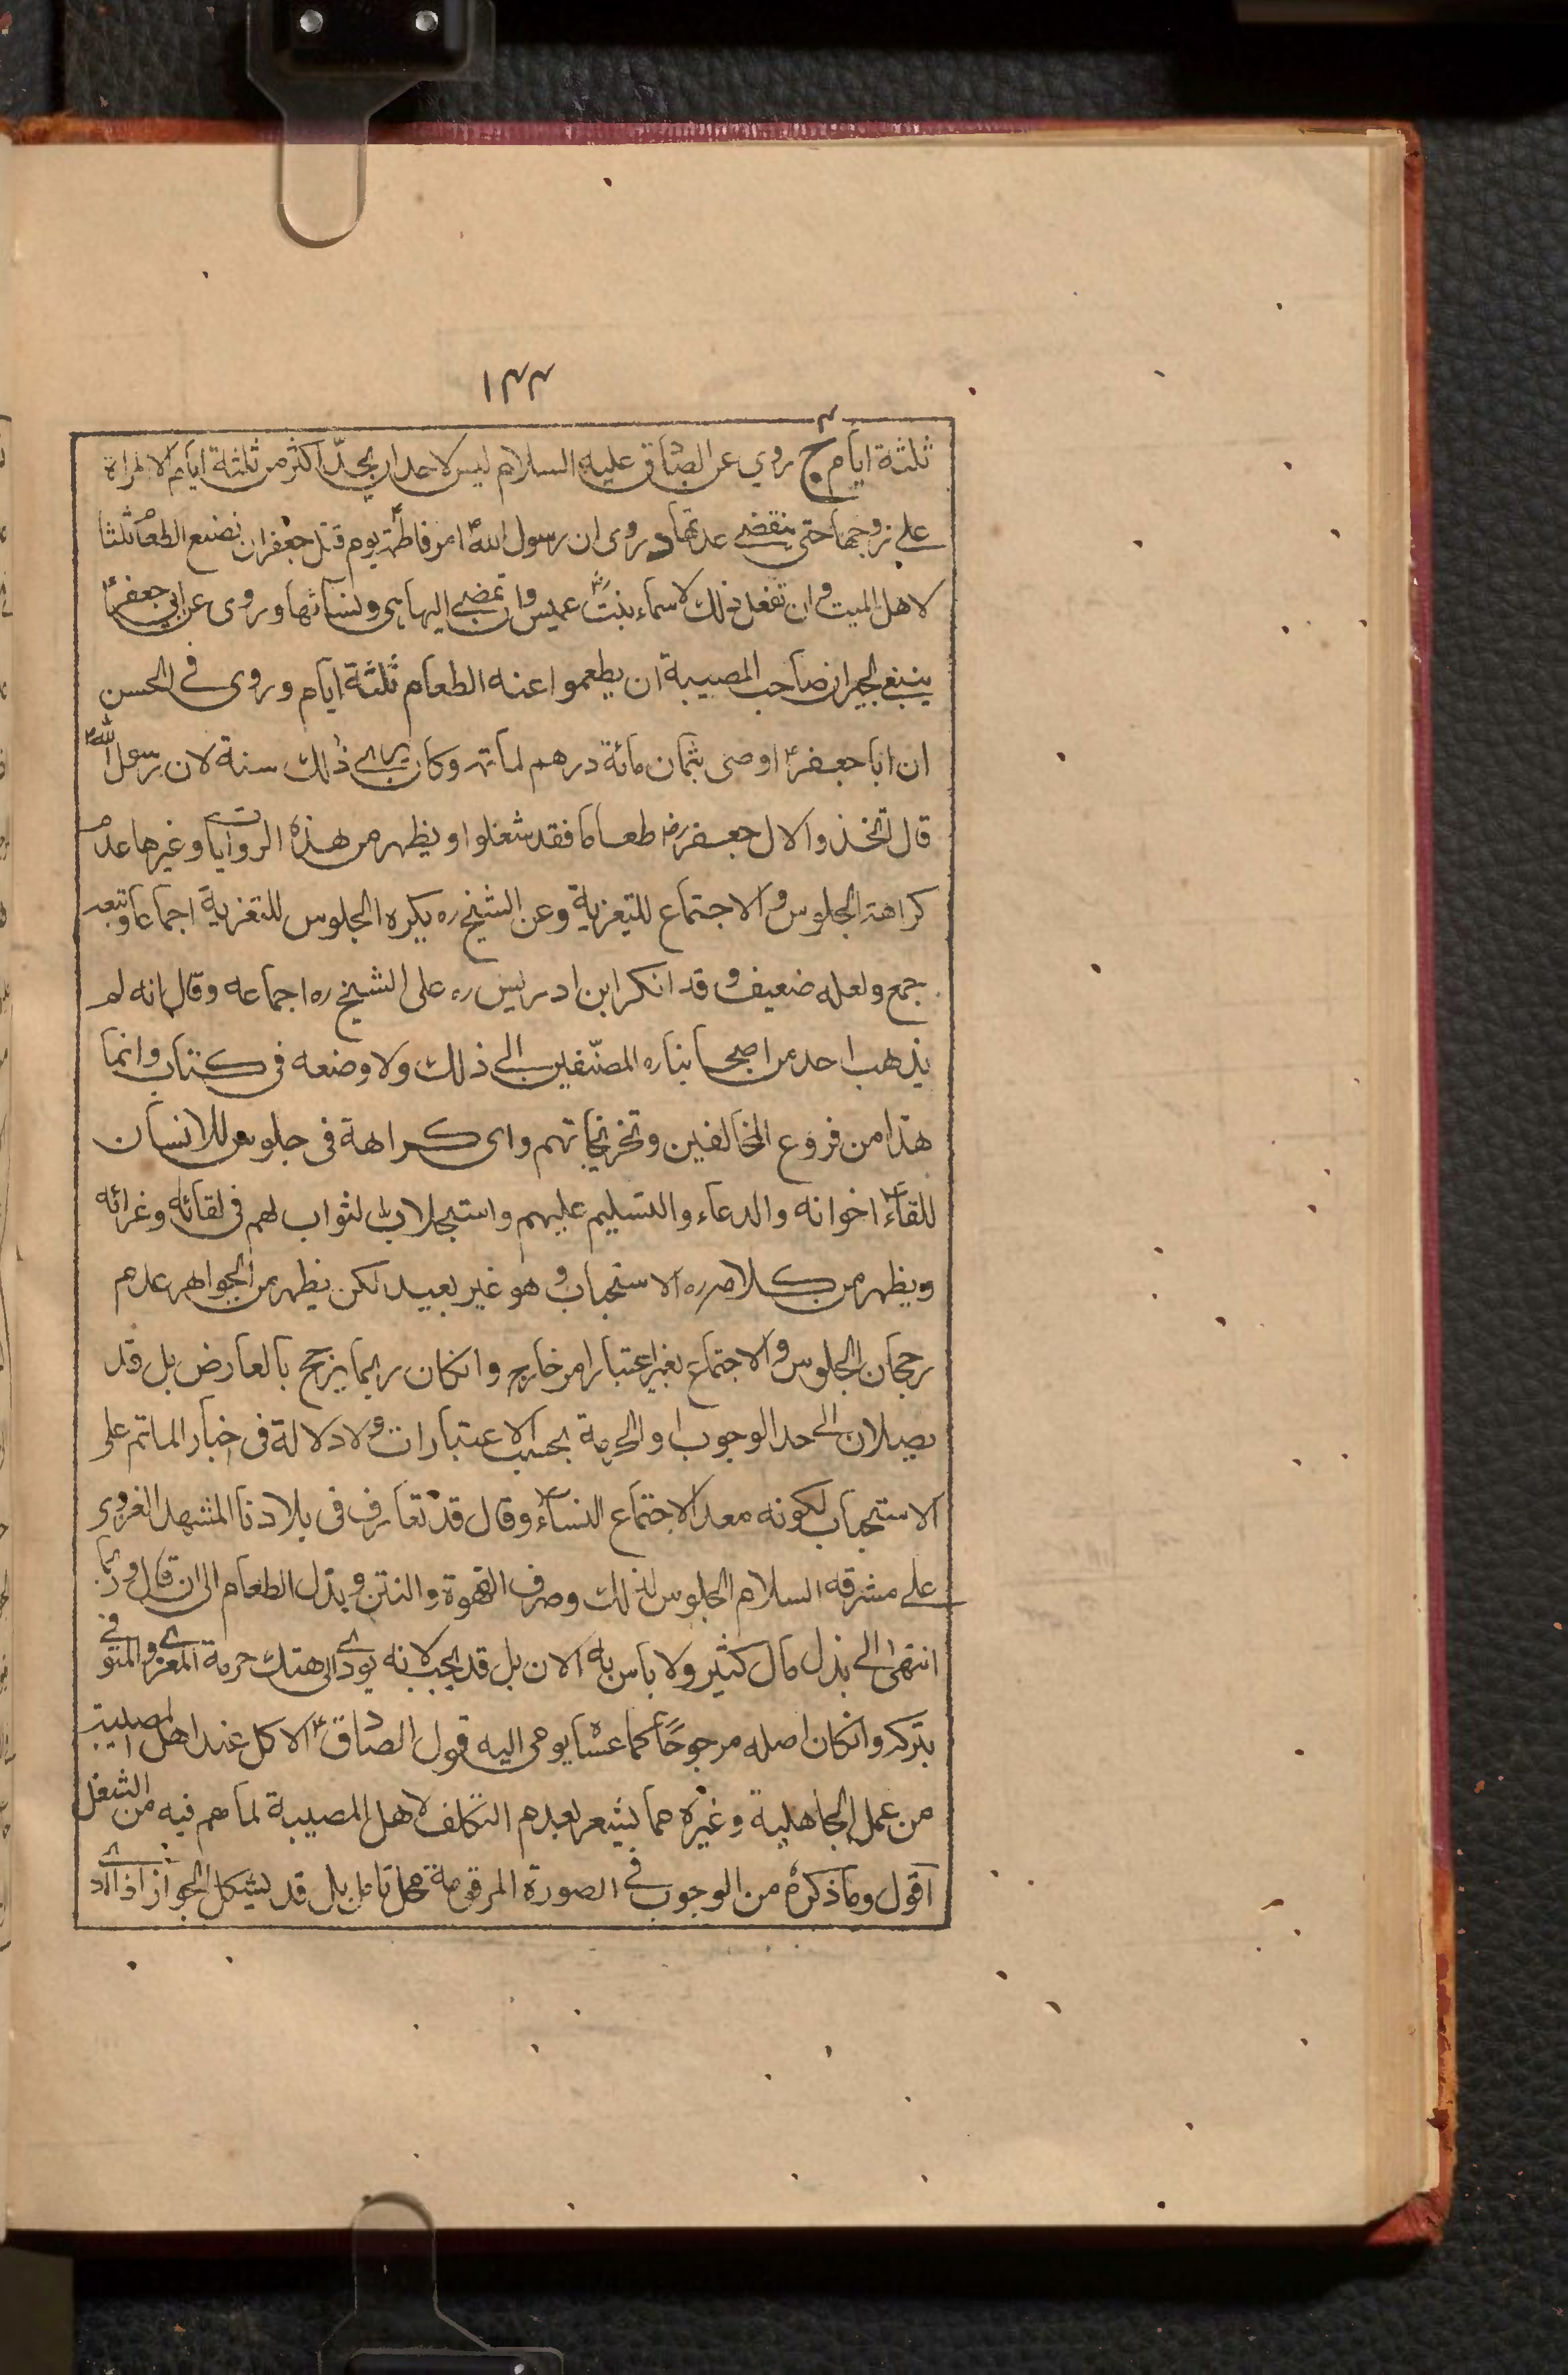 ١٣٣
ثلثة ايام ج روي عن الصادق عليه السلام ليس لاحد ان يحدّ اكثر من ثلثة ايام الا المراة
على زوجها حتى ينقضى عدتها د روى ان رسول الله ص امر فاطمة ع يوم قتل جعفر ان تصنع الطعام ثلثا
لاهل الميت و ان تفعل ذلك لاسماء بنت عميس وان تمضى اليها هى ونسائها و روى عن ابي جعفر ع
ينبغى لجيران صاحب المصيبة ان يطعموا عنه الطعام ثلثة ايام و روى فى الحسن
ان ابا جعفر ع اوصى بثمان مائة درهم لماتمه وكان يرى ذلك سنة لان رسول الله ص
قال اتخذوا لال جعفر رض طعاما فقد شغلوا و يظهر من هذه الروايات و غيرها عدم
كراهة الجلوس و الاجتماع للتعزية وعن الشيخ ره يكره الجلوس للتعزية اجماعا وتبعه
جمع ولعله ضعيف و قد انكر ابن ادريس ره على الشيخ ره اجماعه وقال انه لم
يذهب احد من اصحابنا ره المصنّفين الى ذلك ولا وضعه فى كتاب وانما
هذا من فروع المخالفين وتخريجاتهم واى كراهة فى جلوس للانسان
للقاء اخوانه والدعاء والتسليم عليهم واستجلاب الثواب لهم فى لقائه وعزائه
ويظهر من كلامه ره الاستحباب و هو غير بعيد لكن يظهر من الجواهر عدم
رجحان الجلوس و الاجتماع بغير اعتبار امر خارج وانكان ربما يرجح بالعارض بل قد
يصلان الى حد الوجوب او الحرمة بحسب الاعتبارات و لا دلالة فى اخبار الماتم على
الاستحباب لكونه معدا لاجتماع النساء وقال قد تعارف فى بلادنا المشهد الغروى
على مشرفه السلام الجلوس لذلك وصرف القهوة والتتن و بذل الطعام الى ان قال و ربما
انتهى الى بذل مال كثير ولا باس به الان بل قد يجب لانه يؤدى الى هتك حرمة المعزى والمتوفى
بتركه وانكان اصله مرجوحًا كما عساه يومى اليه قول الصادق ع الاكل عند اهل المصيبة
من عمل الجاهلية و غيره مما يشعر بعدم التكلف لاهل المصيبة لما هم فيه من الشغل
اقول وما ذكره من الوجوب فى الصورة المرقومة محل تامل بل قد يشكل الجواز اذا ادى